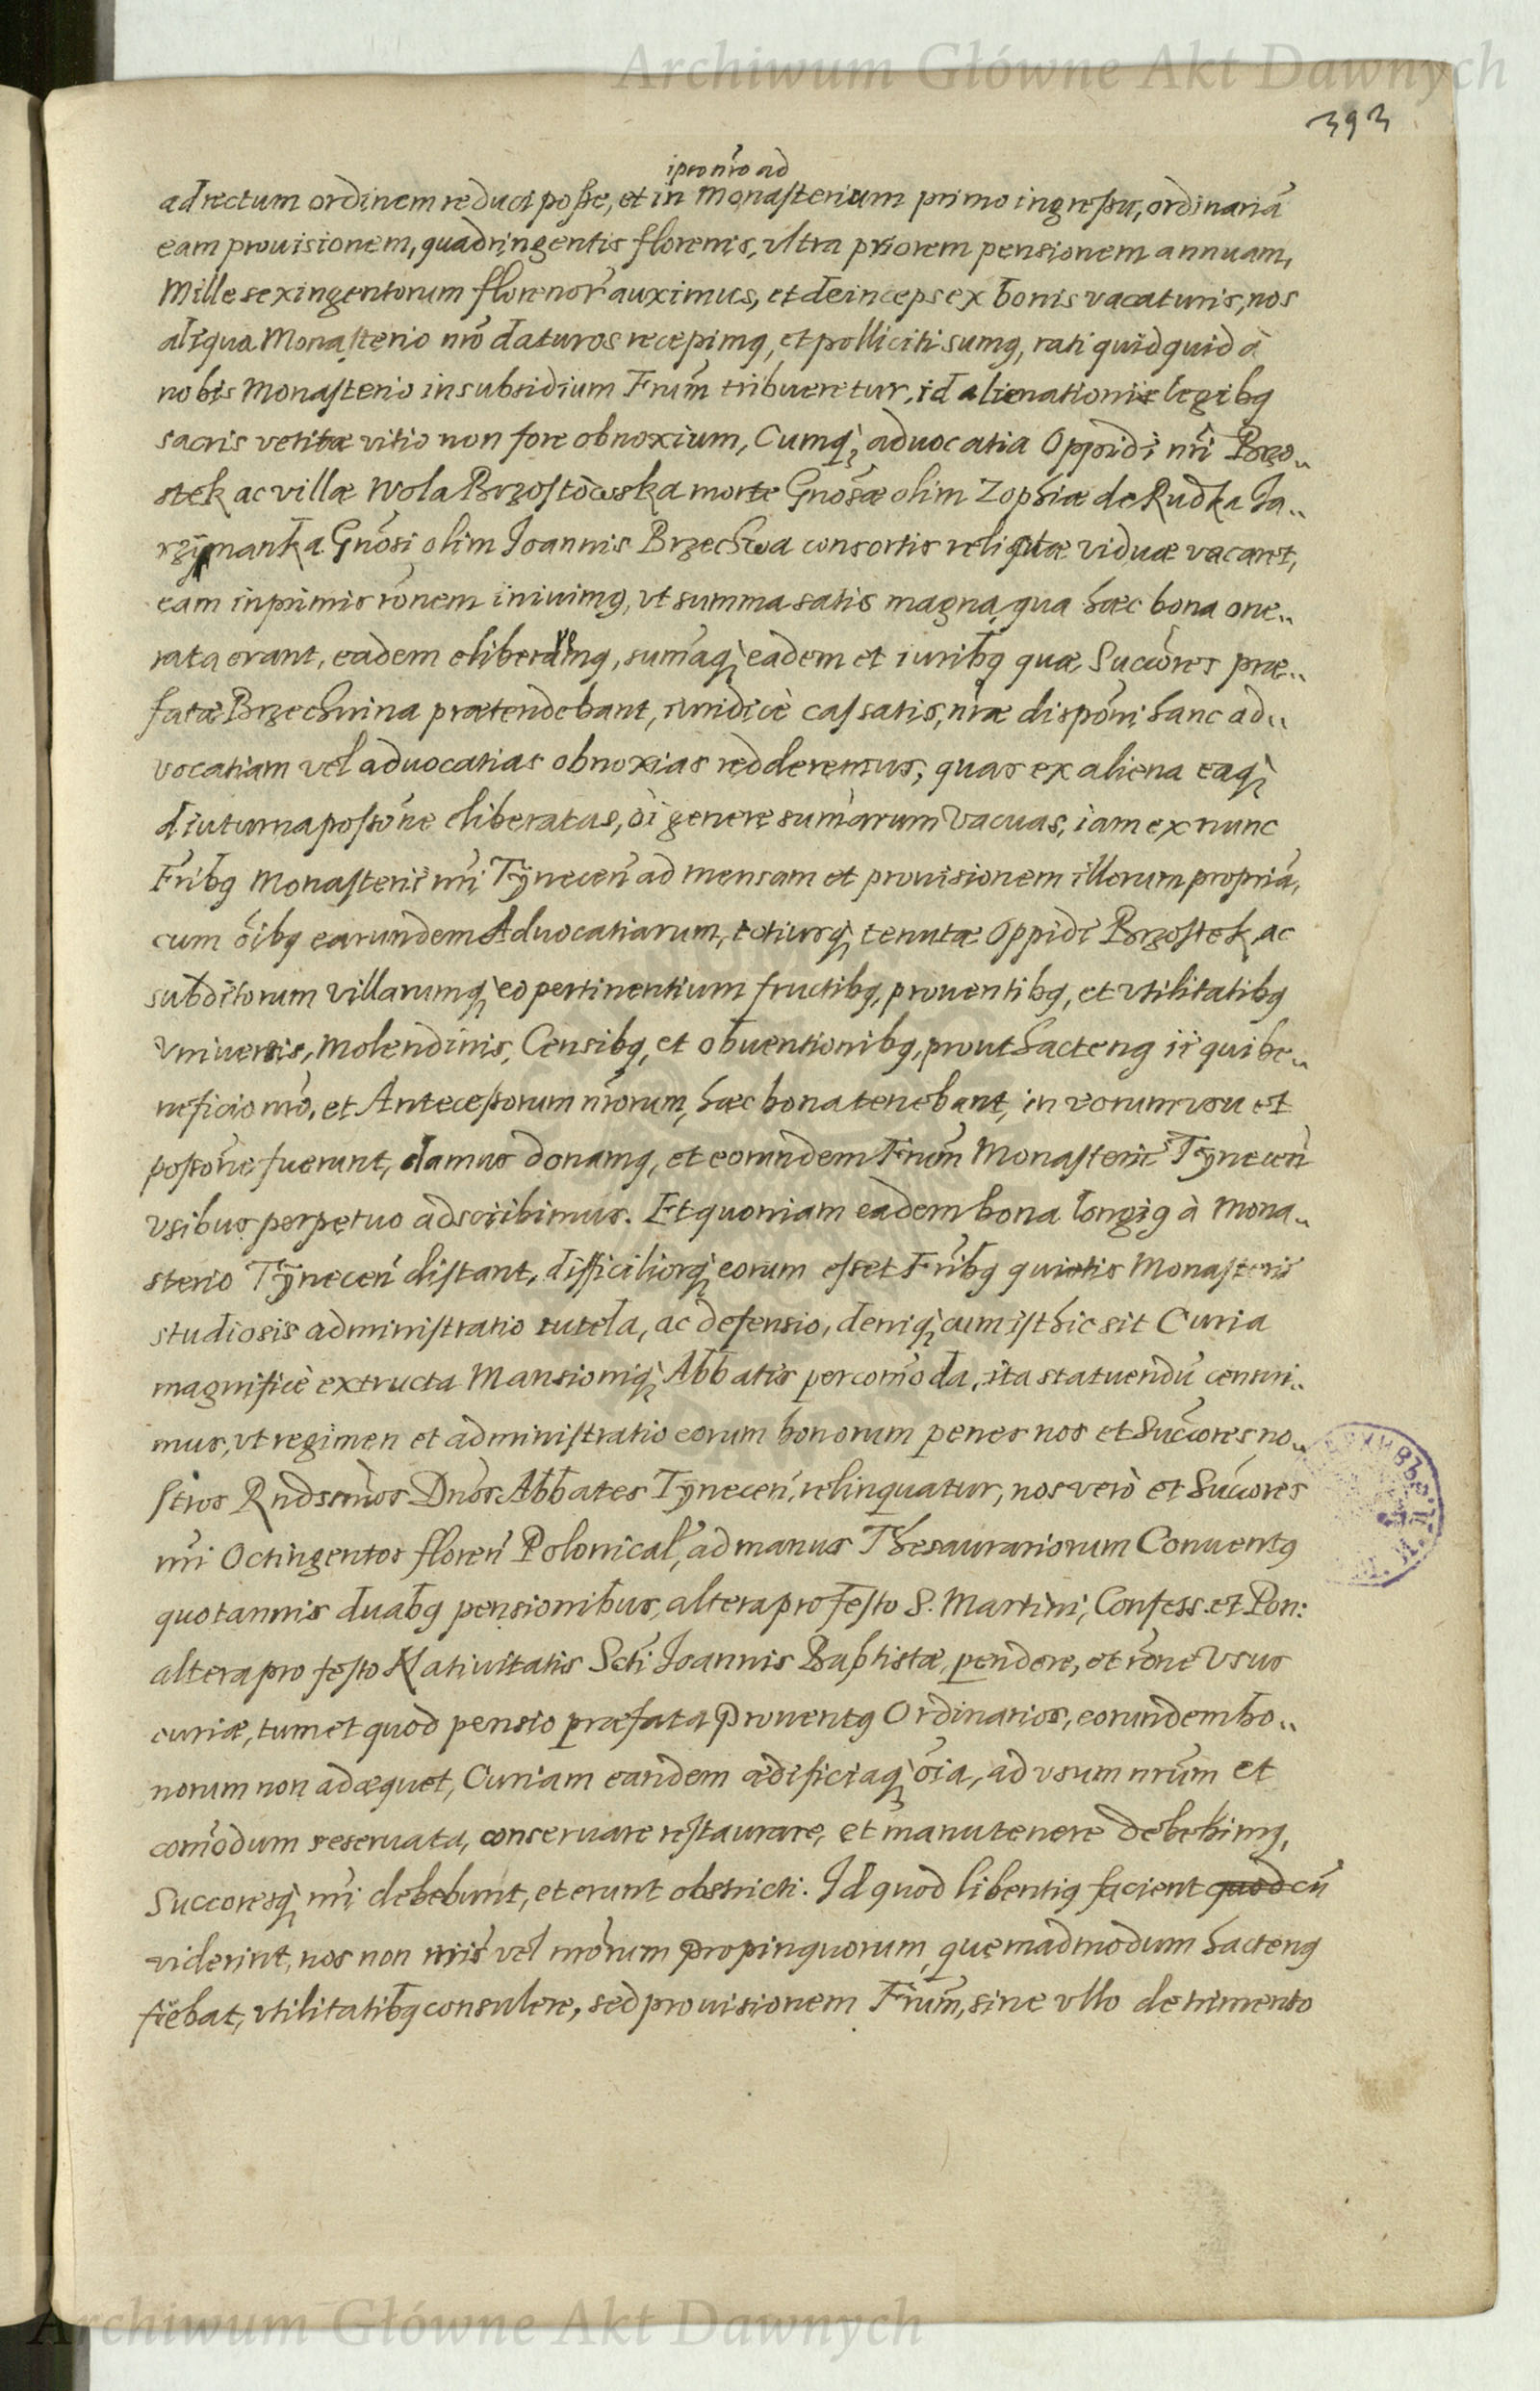 Archiwum Główne Akt Dawnych
393
ipso nr̃o ad
ad rectum ordinem reduci posse, et in Monasterium primo ingressu, ordinariã
eam prouisionem, quadringentis florenis, vltra priorem pensionem annuam,
Mille sexingentorum florenor̃ auximus, et deinceps ex bonis vacaturis, nos
aliqua Monasterio nr̃o daturos recepimq, et polliciti sumq, rati quidquid à
nobis Monasterio in subsidium Frum̃ tribueretur, id alienationis legibq
sacris vetitæ vitio non fore obnoxium, Cumq; aduocatia Oppidi nr̃i Brzo„
stek ac villæ Wola Brzostowska morte Gnõsæ olim Zophiæ de Rudka Ja„
rzymanka Gnõsi olim Joannis Brzechwa consortis relictæ viduæ vacaret,
eam inprimis rõnem iniuimq, vt summa satis magna, qua hæc bona one„
rata erant, eadem eliberaremq, sum̃aq; eadem et iuribq quæ Succõres præ„
fatæ Brzechuina prætendebant, iuridicè cassatis, nr̃æ dispõni hanc ad„
vocatiam vel aduocatias obnoxias redderemus, quas ex aliena eaq;
diuturna possõne eliberatas, õi genere sum̃arum vacuas, iam ex nunc
Fribq Monasterii nr̃i Tÿnecen̄ ad mensam et prouisionem illorum propriã,
cum õibq earundem Aduocatiarum, totiusq; tenutæ Oppidi Brzostek, ac
subditorum villarumq; eo pertinentium fructibq, prouentibq, et vtilitatibq
vniuersis, Molendinis, Censibq, et obuentionibq, prout hactenq ii qui be„
neficio nr̃o, et Antecessorum nr̃orum, hæc bona tenebant, in eorum vsu et
possõne fuerunt, damus donamq, et eorundem Frum̃ Monasterii Tÿnecen̄
vsibus perpetuo adscribimus. Et quoniam eadem bona longiq à Mona„
sterio Tÿnecen̄ distant, difficiliorq; eorum esset Fribq quietis Monasterii
studiosis administratio tutela, ac defensio, deniq; cum isthic sit Curia
magnificè extructa Mansioniq; Abbatis percom̃oda, ita statuendũ censui„
mus, vt regimen et administratio eorum bonorum penes nos et Succõres no„
stros Rndssm̃os Dnõs Abbates Tÿnecen̄, relinquatur, nos verò et Succõres
nr̃i Octingentos floren̄ Polonical̃, ad manus Thesaurariorum Conuentq
quotannis duabq pensionibus, altera pro festo S. Martini, Confess. et Pon:
altera pro festo Natiuitatis Scti Joannis Baptistæ, pendere, et rõne vsus
curiæ, tum et quod pensio præfata prouentq Ordinarios, eorundem bo„
norum non adæquet, Curiam eandem ædificiaq; õia, ad vsum nrum̃ et
com̃odum reseruata, conseruare restaurare, et manutenere debebimq,
Succoresq; nr̃i debebunt, et erunt obstricti. Id quod libentiq facient quod cũ
viderint, nos non nr̃is vel nr̃orum propinquorum, quemadmodum hactenq
fiebat, vtilitatibq consulere, sed prouisionem Frum̃, sine vllo detrimento
Archiwum Główne Akt Dawnych